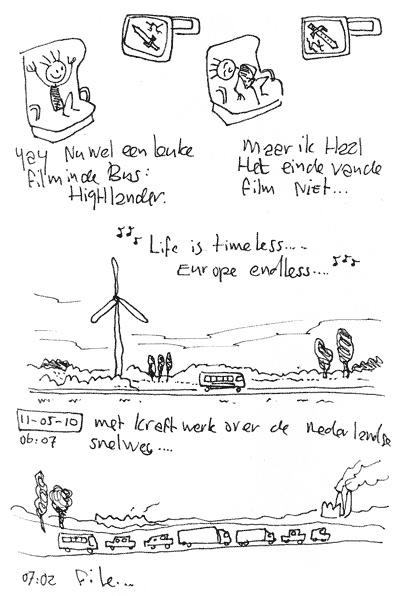 yay Nu wel een leuke
film in de Bus:
Highlander.
maar ik Haal
Het einde van de
film Niet...
Life is timeless....
Europe endless....
11-05-10
06:07
met kraftwerk over de nederlandse
snelweg....
07:02 File...